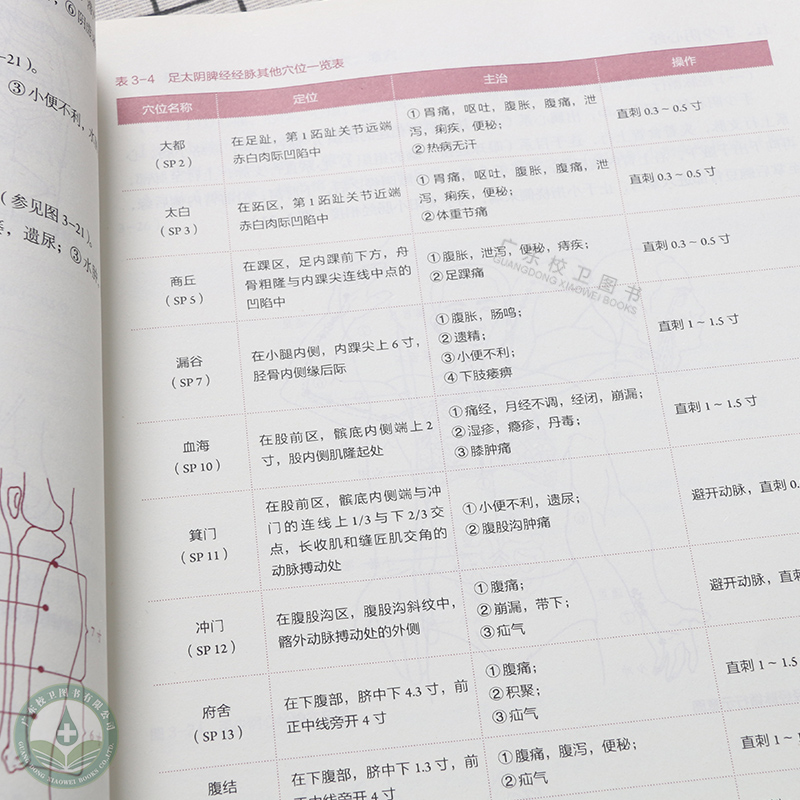 ⑥阴
-21）。
③小便不利，水
（参见图 3-21）。
，遗尿；③水肿，
表 3-4　足太阴脾经经脉其他穴位一览表
穴位名称　定位　主治　操作
大都
（SP 2）
在足趾，第 1 跖趾关节远端
赤白肉际凹陷中
①胃痛，呕吐，腹胀，腹痛，泄
泻，痢疾，便秘；
②热病无汗
直刺 0.3 ~ 0.5 寸
太白
（SP 3）
在跖区，第 1 跖趾关节近端
赤白肉际凹陷中
①胃痛，呕吐，腹胀，腹痛，泄
泻，痢疾，便秘；
②体重节痛
直刺 0.3 ~ 0.5 寸
商丘
（SP 5）
在踝区，足内踝前下方，舟
骨粗隆与内踝尖连线中点的
凹陷中
①腹胀，泄泻，便秘，痔疾；
②足踝痛
直刺 0.3 ~ 0.5 寸
漏谷
（SP 7）
在小腿内侧，内踝尖上 6 寸，
胫骨内侧缘后际
①腹胀，肠鸣；
②遗精；
③小便不利；
④下肢痿痹
直刺 1 ~ 1.5 寸
血海
（SP 10）
在股前区，髌底内侧端上 2
寸，股内侧肌隆起处
①痛经，月经不调，经闭，崩漏；
②湿疹，瘾疹，丹毒；
③膝肿痛
直刺 1 ~ 1.5 寸
箕门
（SP 11）
在股前区，髌底内侧端与冲
门的连线上 1/3 与下 2/3 交
点，长收肌和缝匠肌交角的
动脉搏动处
①小便不利，遗尿；
②腹股沟肿痛
避开动脉，直刺 0.
冲门
（SP 12）
在腹股沟区，腹股沟斜纹中，
髂外动脉搏动处的外侧
①腹痛；
②崩漏，带下；
③疝气
避开动脉，直刺
府舍
（SP 13）
在下腹部，脐中下 4.3 寸，前
正中线旁开 4 寸
①腹痛；
②积聚；
③疝气
直刺 1 ~ 1.5
腹结
在下腹部，脐中下 1.3 寸，前
正中线旁开 4 寸
①腹痛，腹泻，便秘；
②疝气
直刺 1 ~
广东校卫图书
GUANGDONG XIAOWEI BOOKS
广东校卫图书有限公司
GUANGDONG XIAOWEI BOOKS CO.,LTD.